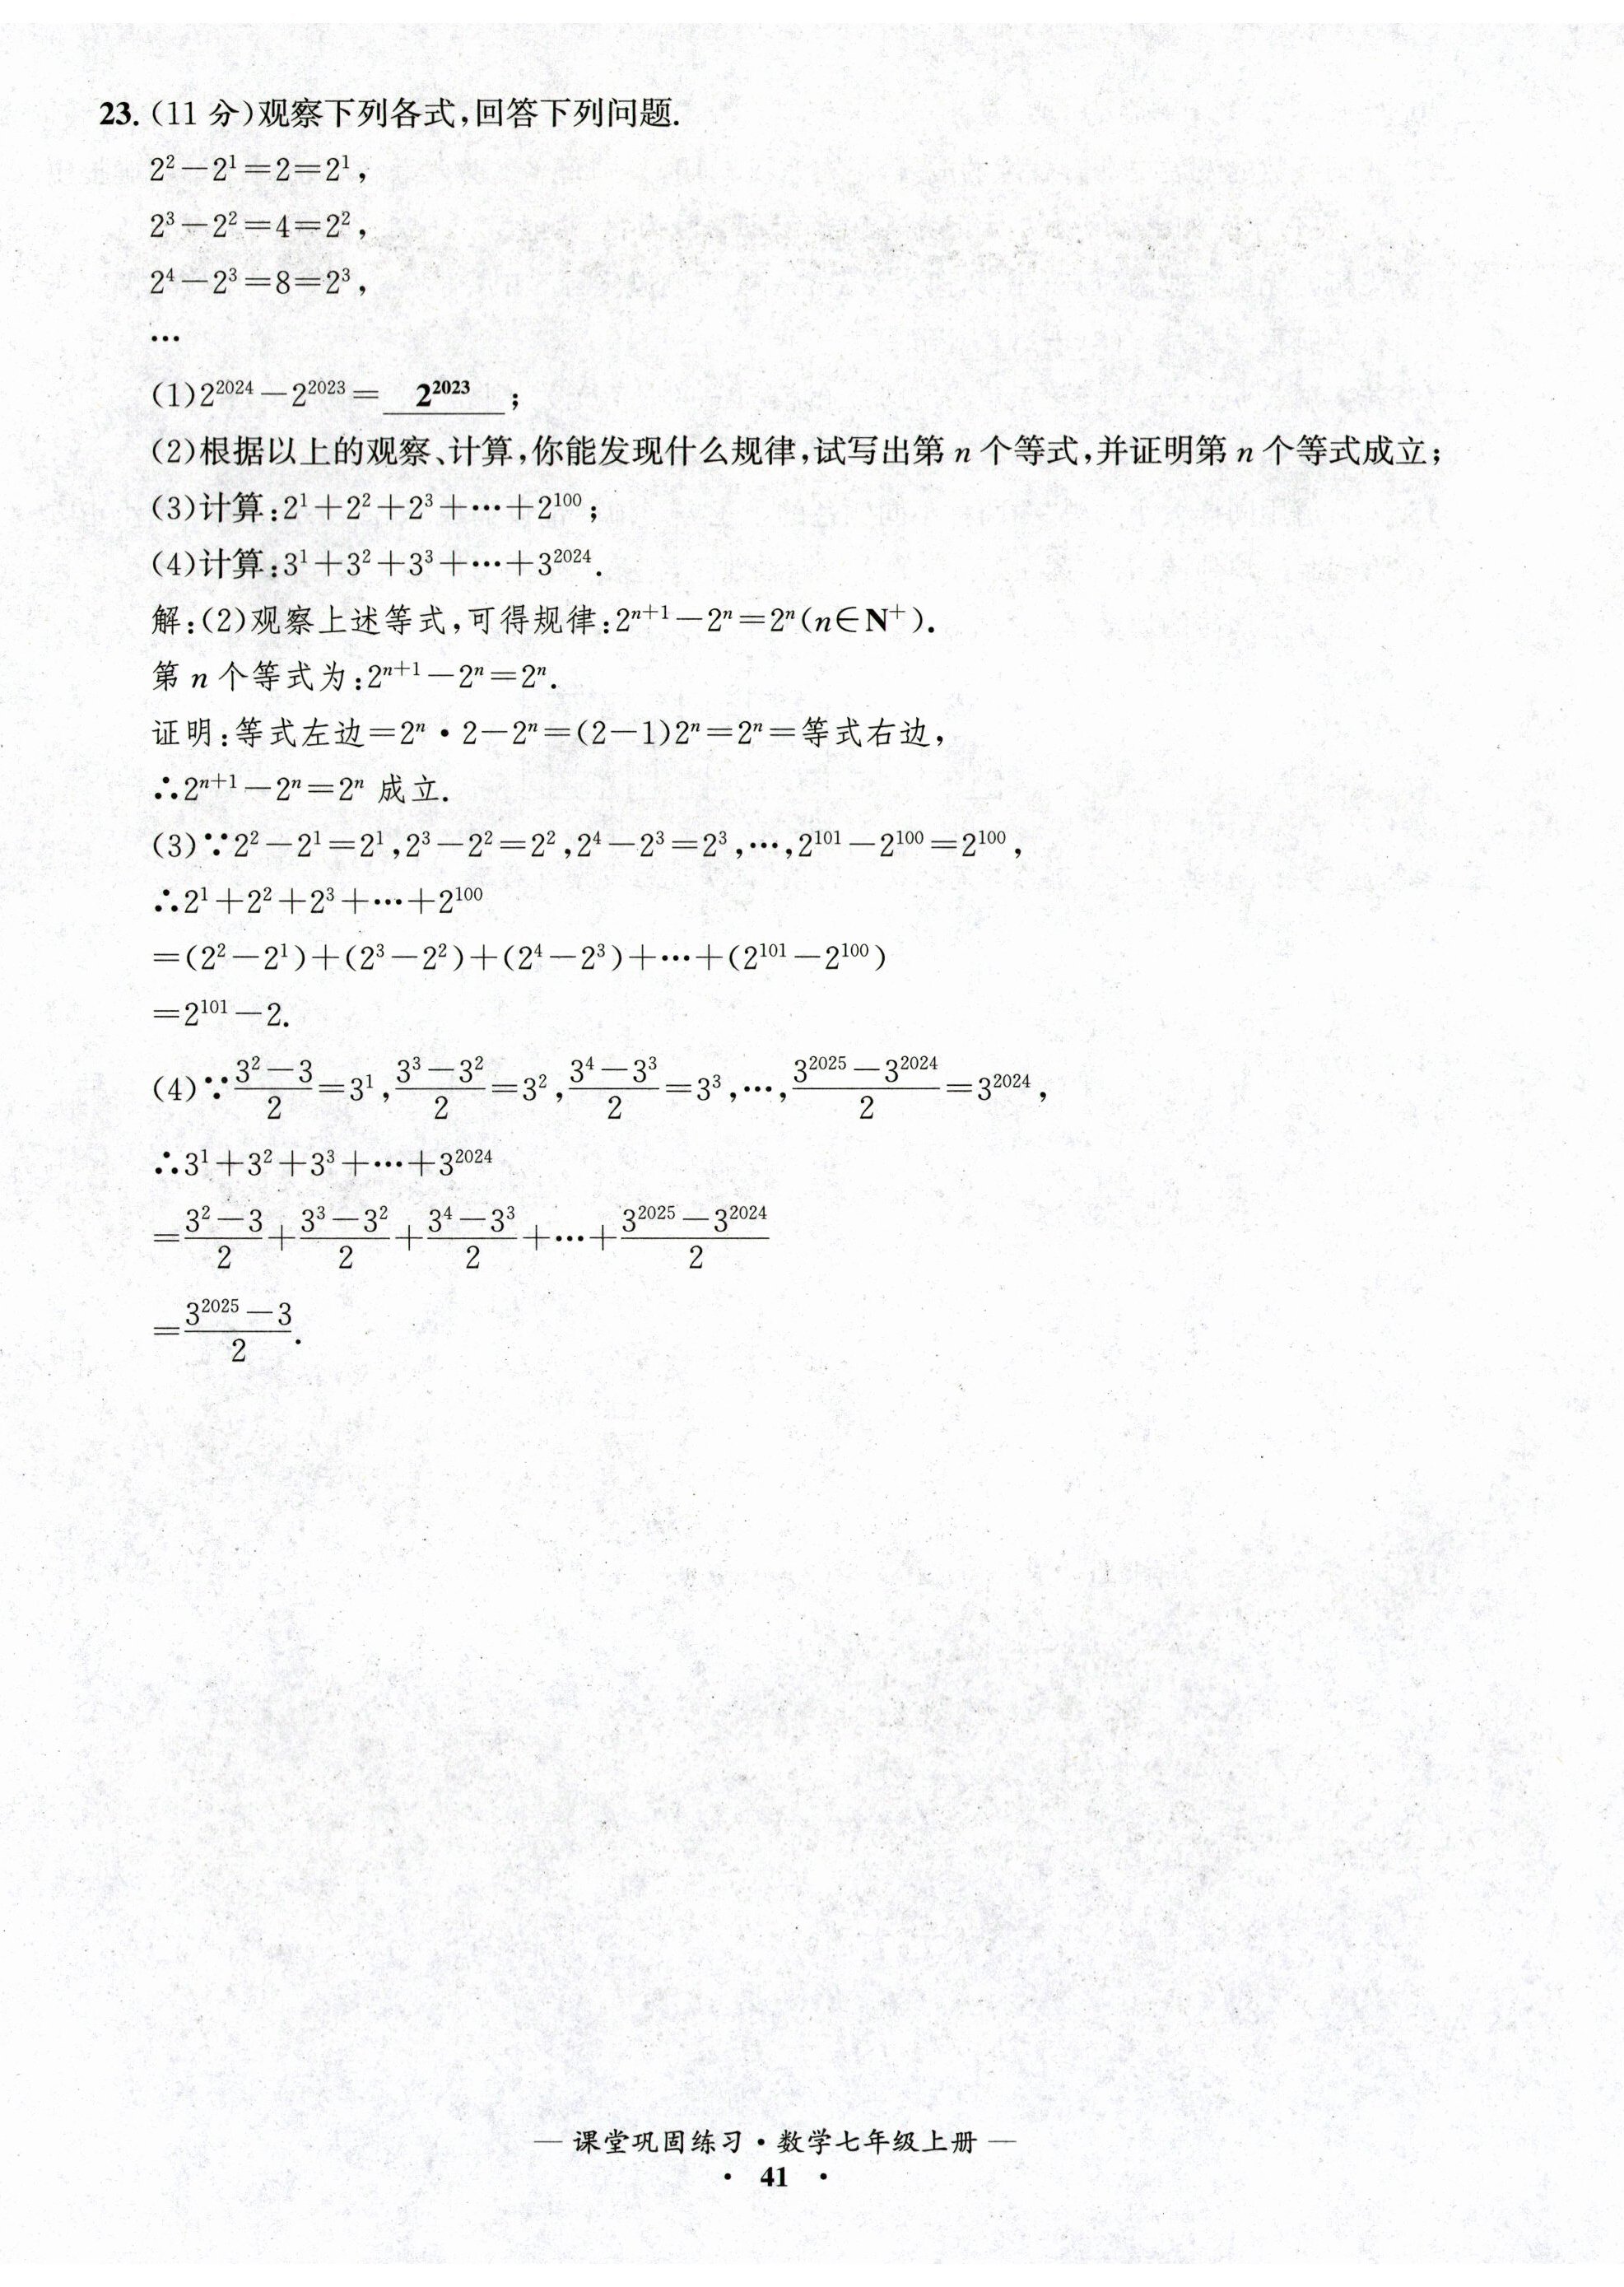 23.(11 分)观察下列各式,回答下列问题.
2²－2¹＝2＝2¹,
2³－2²＝4＝2²,
2⁴－2³＝8＝2³,
…
(1)2²⁰²⁴－2²⁰²³＝ 2²⁰²³ ;
(2)根据以上的观察、计算,你能发现什么规律,试写出第 n 个等式,并证明第 n 个等式成立;
(3)计算:2¹＋2²＋2³＋…＋2¹⁰⁰;
(4)计算:3¹＋3²＋3³＋…＋3²⁰²⁴.
解:(2)观察上述等式,可得规律:2ⁿ⁺¹－2ⁿ＝2ⁿ(n∈N⁺).
第 n 个等式为:2ⁿ⁺¹－2ⁿ＝2ⁿ.
证明:等式左边＝2ⁿ・2－2ⁿ＝(2－1)2ⁿ＝2ⁿ＝等式右边,
∴2ⁿ⁺¹－2ⁿ＝2ⁿ 成立.
(3)∵2²－2¹＝2¹,2³－2²＝2²,2⁴－2³＝2³,…,2¹⁰¹－2¹⁰⁰＝2¹⁰⁰,
∴2¹＋2²＋2³＋…＋2¹⁰⁰
＝(2²－2¹)＋(2³－2²)＋(2⁴－2³)＋…＋(2¹⁰¹－2¹⁰⁰)
＝2¹⁰¹－2.
(4)∵(3²－3)/2＝3¹,(3³－3²)/2＝3²,(3⁴－3³)/2＝3³,…,(3²⁰²⁵－3²⁰²⁴)/2＝3²⁰²⁴,
∴3¹＋3²＋3³＋…＋3²⁰²⁴
＝(3²－3)/2＋(3³－3²)/2＋(3⁴－3³)/2＋…＋(3²⁰²⁵－3²⁰²⁴)/2
＝(3²⁰²⁵－3)/2.
— 课堂巩固练习・数学七年级上册 —
・ 41 ・